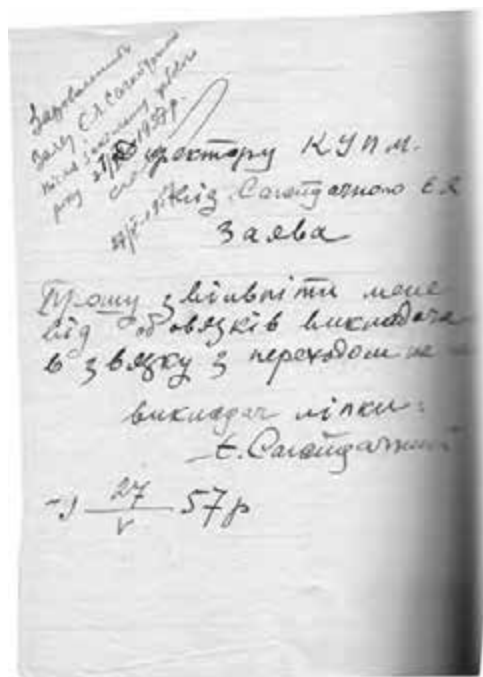 Задовольнити
заяву Є.Я. Сагайдачного
після закінчення
року 1957р.
Директору КУПМ.
Від Сагайдачного Є.Я
Заява
Прошу звільнити мене
від обовязків викладача
в звязку з переходом на
викладач ліпки:
Є. Сагайдачний
27
V
57р